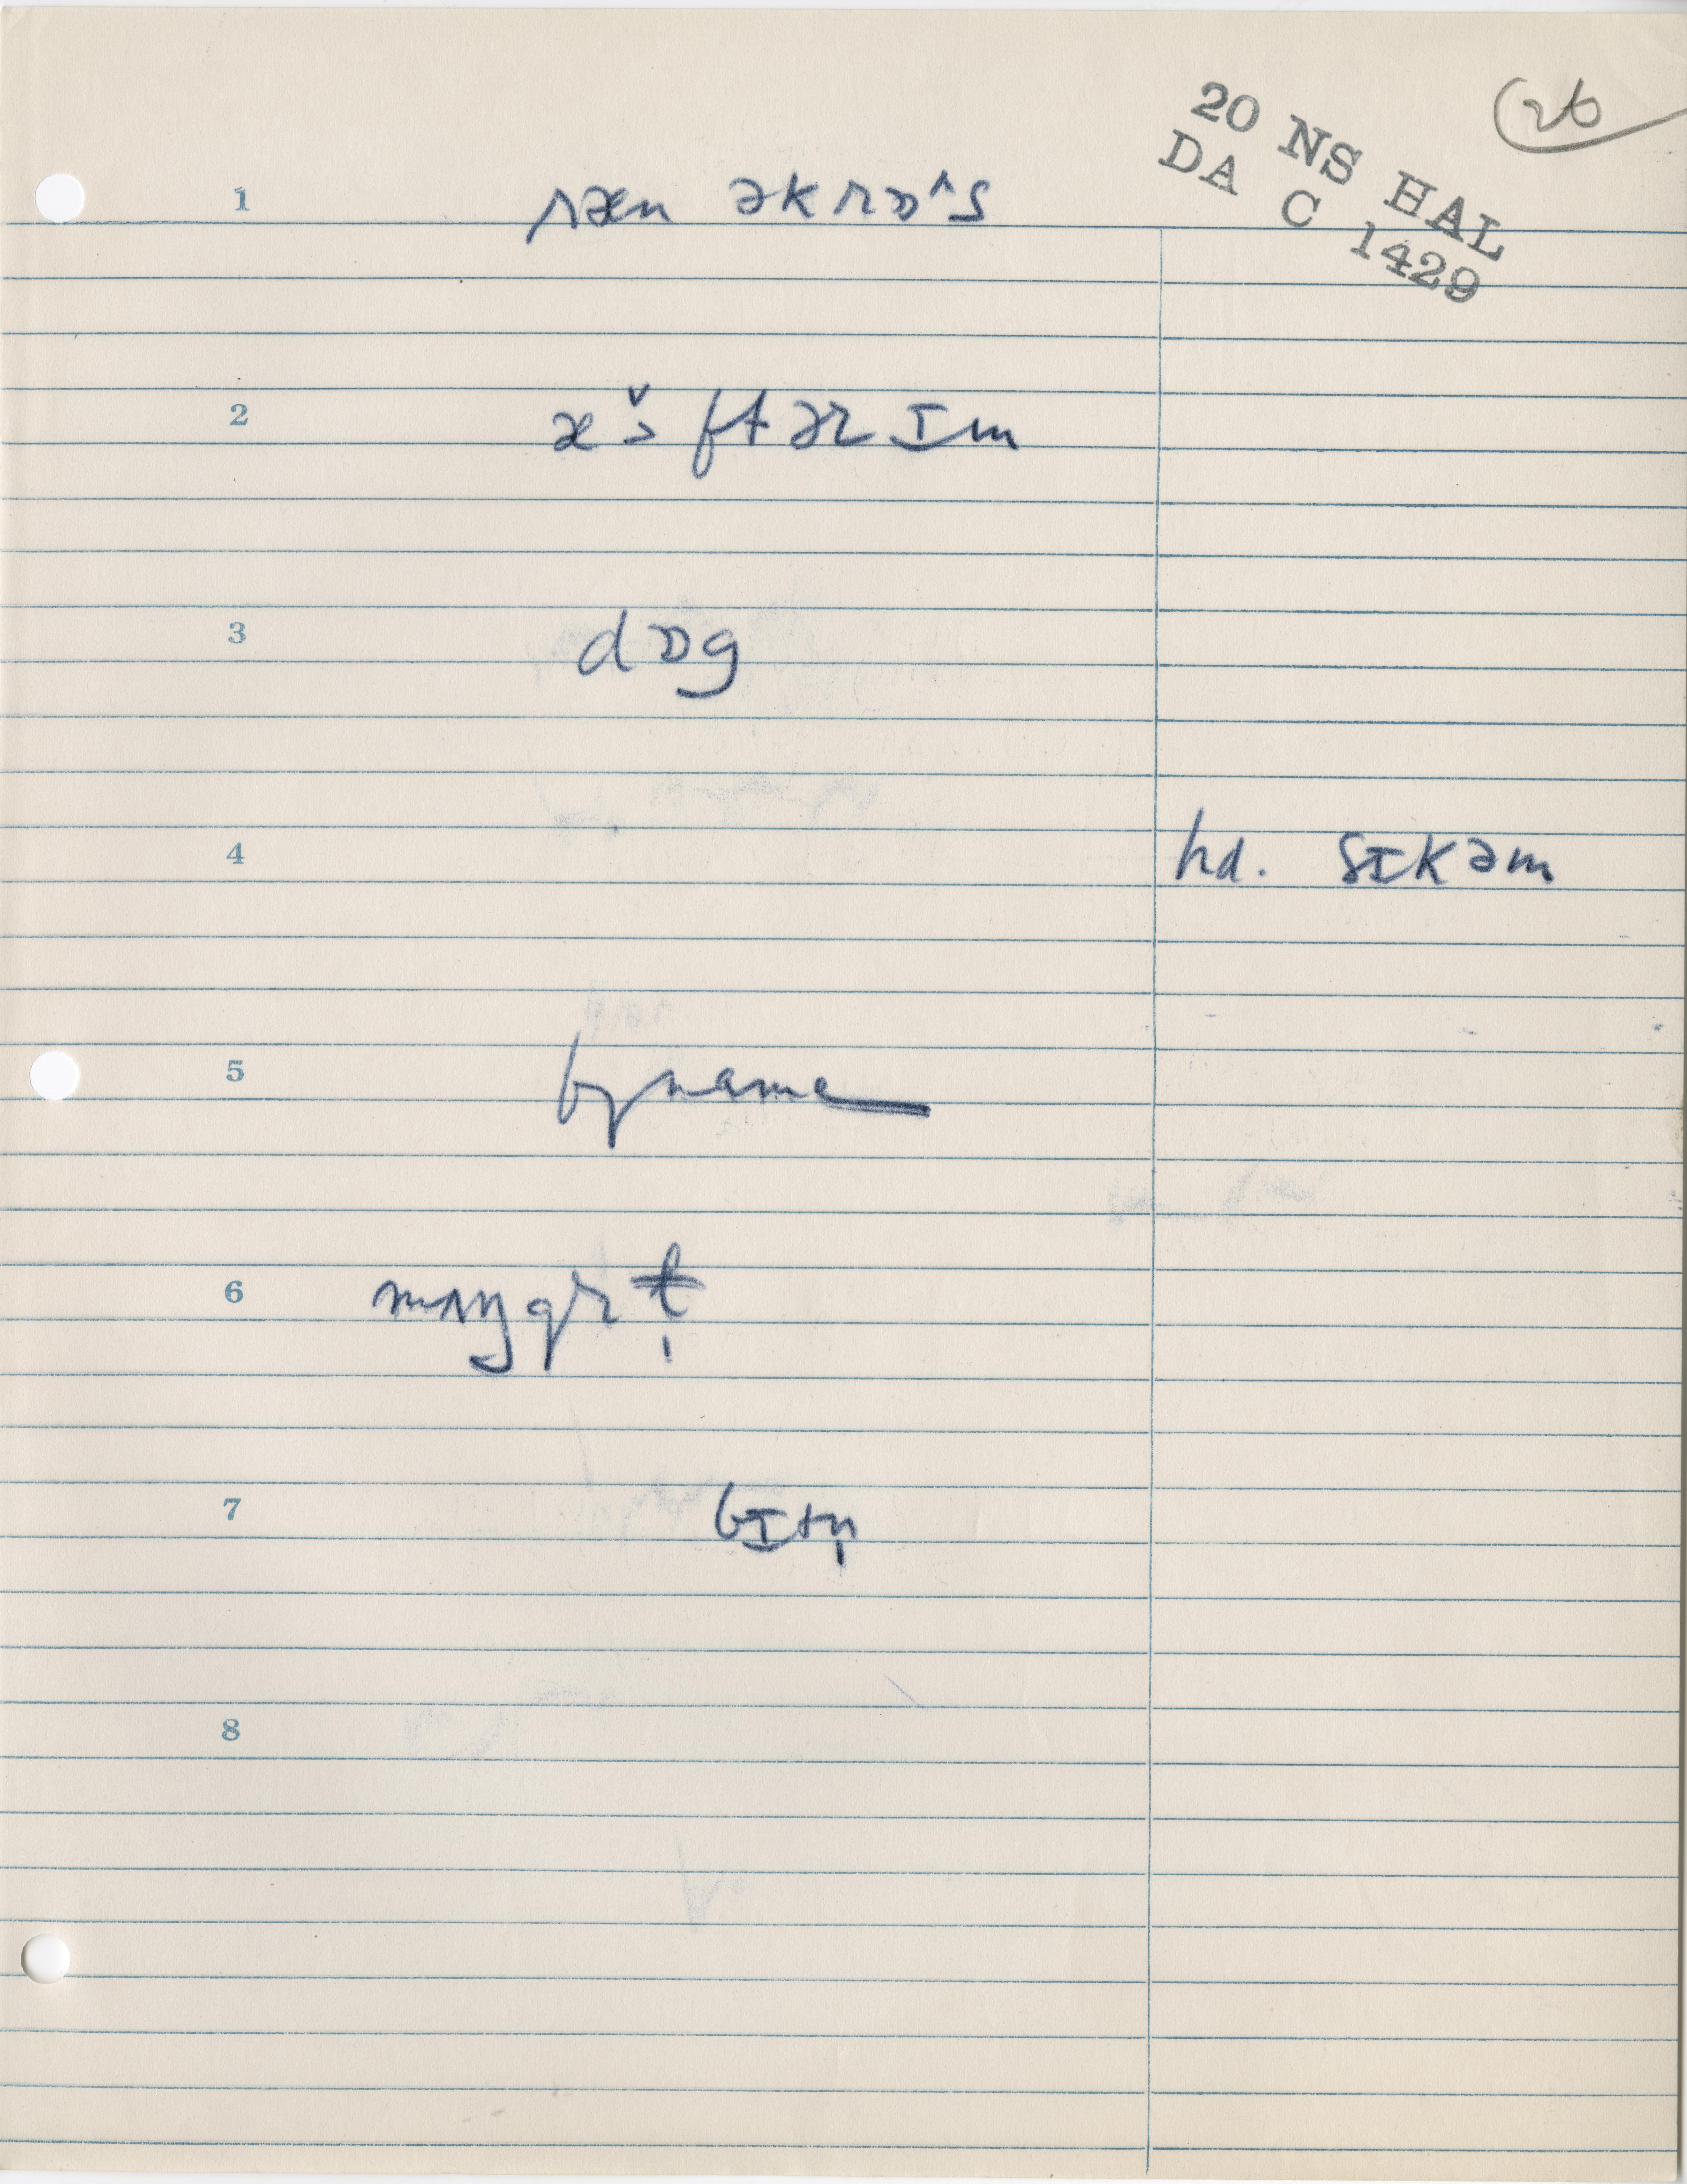 26
20 NS HAL
DA C 1429
1 ræn əkrɒ^s
2 ftərɪm
3 dɒg
4 hd. sɪkəm
5 by name
6 mʌŋgrəl
7 bɪtn̩
8